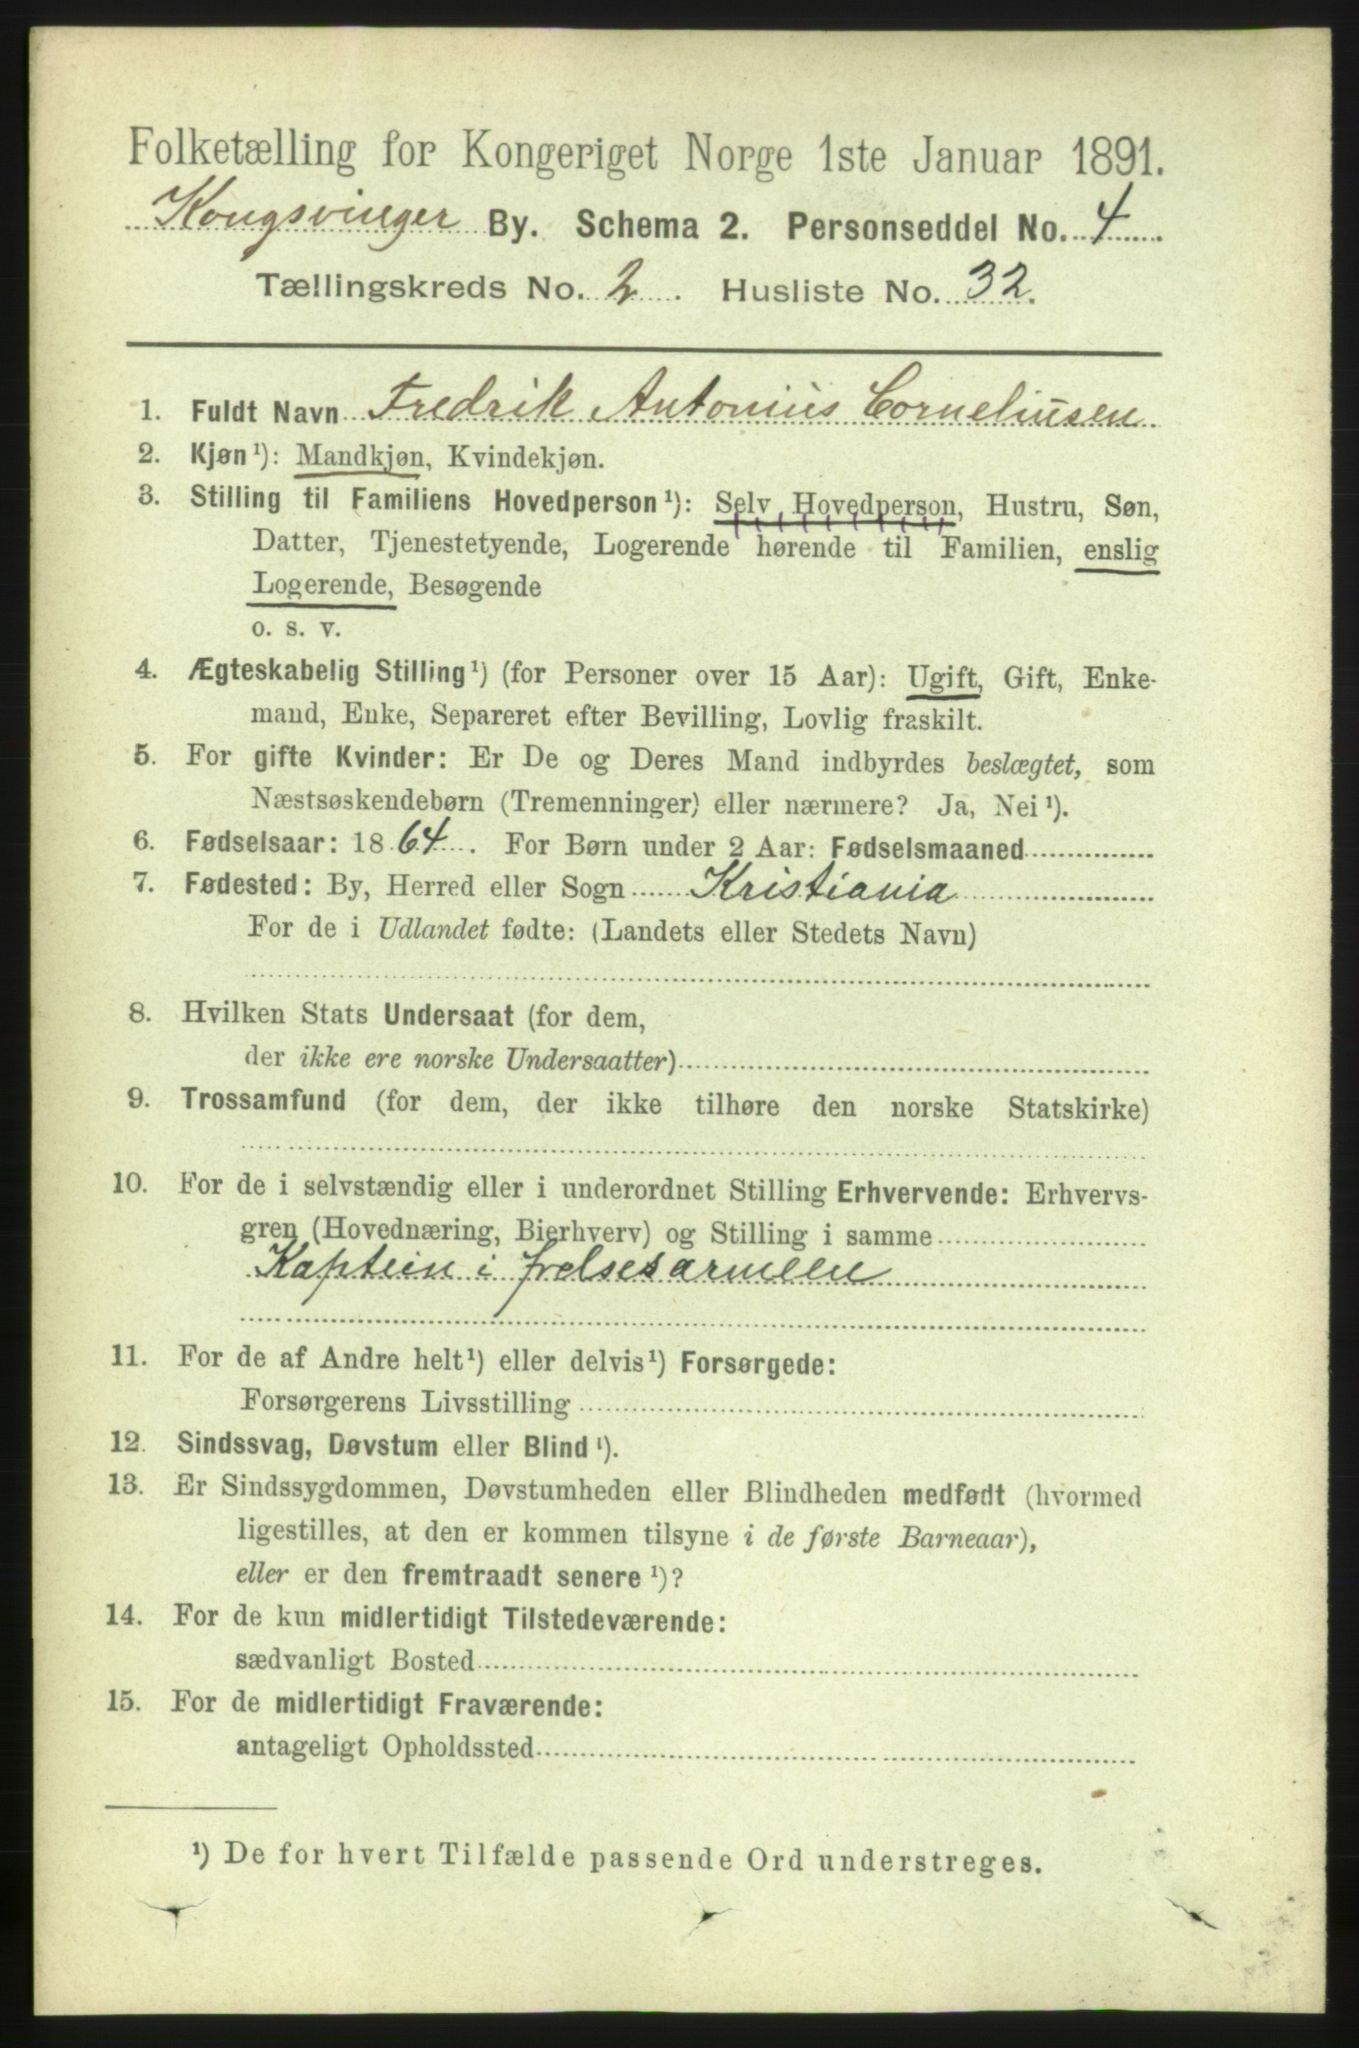 Folketælling for Kongeriget Norge 1ste Januar 1891.
Kongsvinger By. Schema 2. Personseddel No. 4
Tællingskreds No. 2. Husliste No. 32.
1. Fuldt Navn Fredrik Antonius Corneliusen
2. Kjøn¹): Mandkjøn, Kvindekjøn.
3. Stilling til Familiens Hovedperson¹): Selv Hovedperson, Hustru, Søn,
Datter, Tjenestetyende, Logerende hørende til Familien, enslig
Logerende, Besøgende
o. s. v.
4. Ægteskabelig Stilling¹) (for Personer over 15 Aar): Ugift, Gift, Enke-
mand, Enke, Separeret efter Bevilling, Lovlig fraskilt.
5. For gifte Kvinder: Er De og Deres Mand indbyrdes beslægtet, som
Næstsøskendebørn (Tremenninger) eller nærmere? Ja, Nei¹).
6. Fødselsaar: 1864. For Børn under 2 Aar: Fødselsmaaned
7. Fødested: By, Herred eller Sogn Kristiania
For de i Udlandet fødte: (Landets eller Stedets Navn)
8. Hvilken Stats Undersaat (for dem,
der ikke ere norske Undersaatter)
9. Trossamfund (for dem, der ikke tilhøre den norske Statskirke)
10. For de i selvstændig eller i underordnet Stilling Erhvervende: Erhvervs-
gren (Hovednæring, Bierhverv) og Stilling i samme
Kaptein i frelsesarmeen
11. For de af Andre helt¹) eller delvis¹) Forsørgede:
Forsørgerens Livsstilling
12. Sindssvag, Døvstum eller Blind¹).
13. Er Sindssygdommen, Døvstumheden eller Blindheden medfødt (hvormed
ligestilles, at den er kommen tilsyne i de første Barneaar),
eller er den fremtraadt senere¹)?
14. For de kun midlertidigt Tilstedeværende:
sædvanligt Bosted
15. For de midlertidigt Fraværende:
antageligt Opholdssted
¹) De for hvert Tilfælde passende Ord understreges.